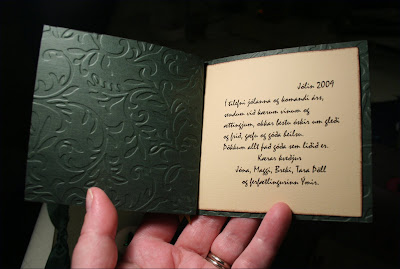 Jólin 2009
Í tilefni jólanna og komandi árs,
sendum við kærum vinum og
ættingjum, okkar bestu óskir um gleði
og frið, gæfu og góða heilsu.
Þökkum allt það góða sem liðið er.
Kærar kveðjur
Jóna, Maggi, Breki, Tara Döll
og ferfætlingurinn Ýmir.